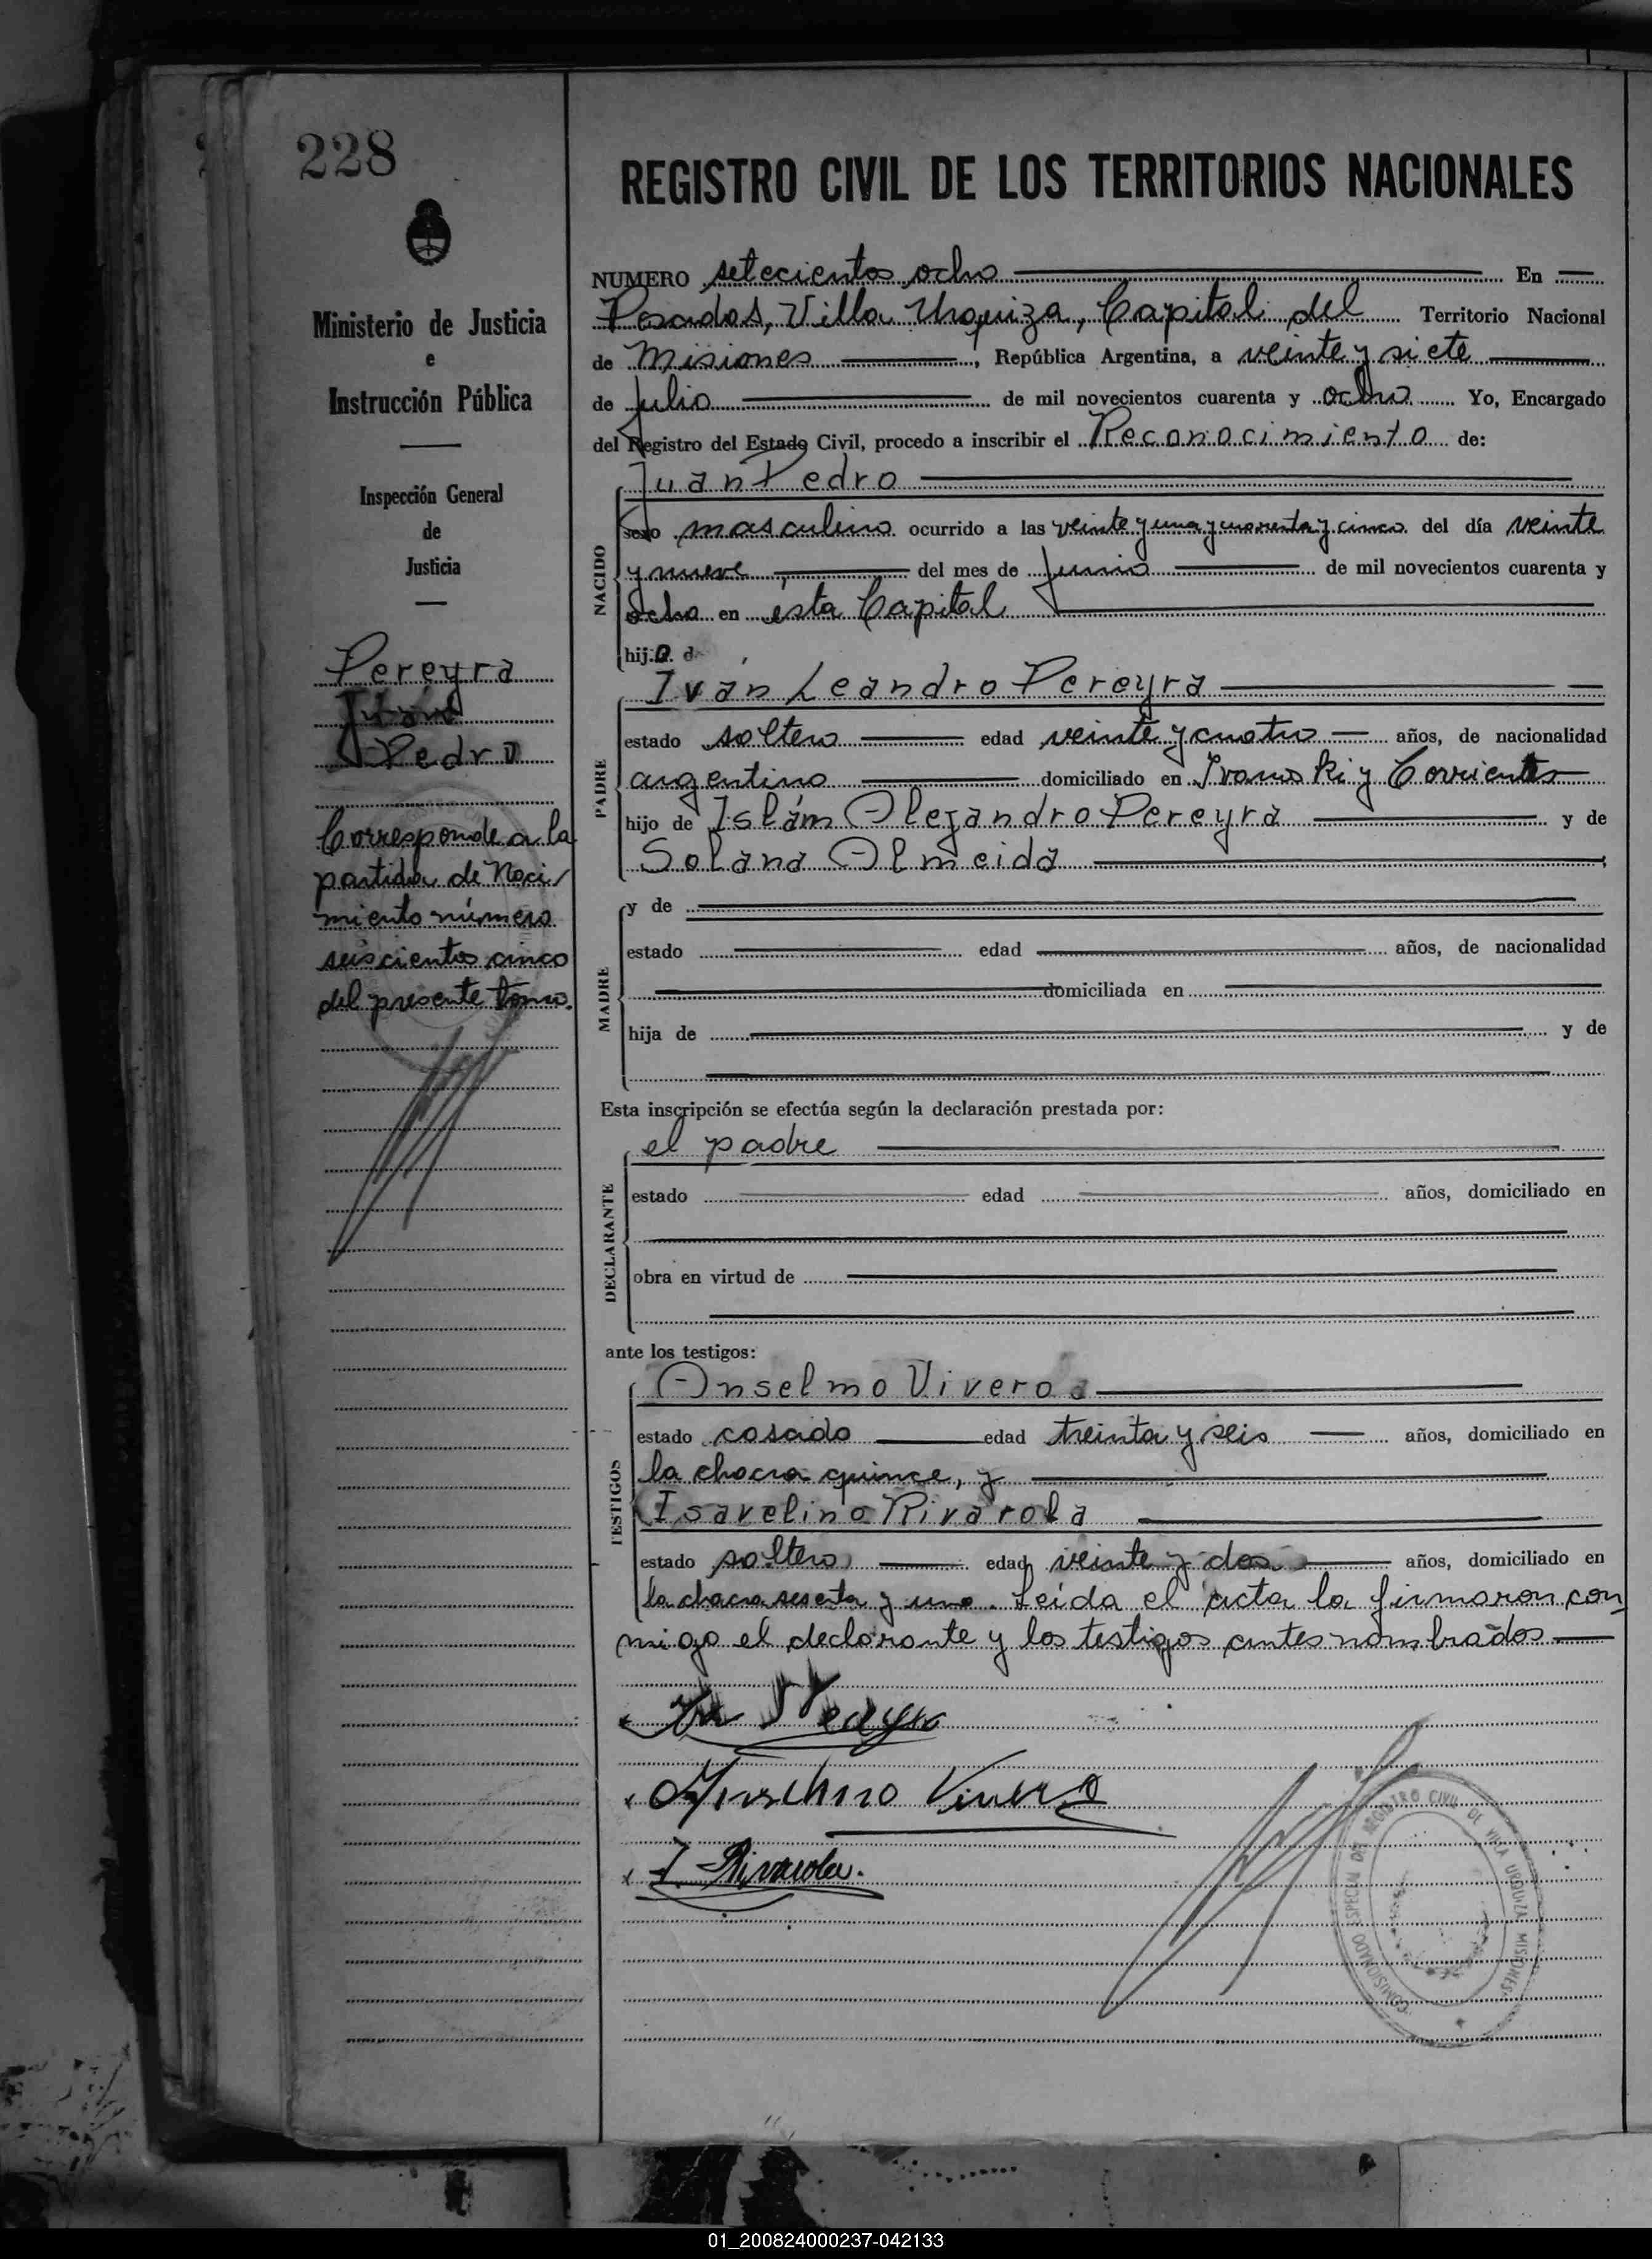 228
Ministerio de Justicia
e
Instrucción Pública
Inspección General
de
Justicia
Pereyra
Juan
Pedro
Corresponde a la
partida de Naci
miento número
seiscientos cinco
del presente tomo.
REGISTRO CIVIL DE LOS TERRITORIOS NACIONALES
NUMERO setecientos ocho En
Posadas, Villa Urquiza, Capital del Territorio Nacional
de Misiones, República Argentina, a veinte y siete
de Julio de mil novecientos cuarenta y ocho Yo, Encargado
del Registro del Estado Civil, procedo a inscribir el Reconocimiento de:
NACIDO
Juan Pedro
sexo masculino ocurrido a las veinte y una y cuarenta y cinco del día veinte
y nueve del mes de Junio de mil novecientos cuarenta y
ocho en ésta Capital
hijo d
PADRE
Iván Leandro Pereyra
estado soltero edad veinte y cuatro años, de nacionalidad
argentino domiciliado en Ivanoski y Corrientes
hijo de Islám Alejandro Pereyra y de
Solana Almeida
MADRE
y de
estado edad años, de nacionalidad
domiciliada en
hija de y de
Esta inscripción se efectúa según la declaración prestada por:
DECLARANTE
el padre
estado edad años, domiciliado en
obra en virtud de
ante los testigos:
TESTIGOS
Anselmo Viveros
estado casado edad treinta y seis años, domiciliado en
la chacra quince, y
Isavelino Rivarola
estado soltero edad veinte y dos años, domiciliado en
la chacra sesenta y uno. Leída el acta la firmaron con
migo el declarante y los testigos antes nombrados
I. Rivarola.
COMISIONADO ESPECIAL DEL REGISTRO CIVIL DE VILLA URQUIZA MISIONES
01_200824000237-042133